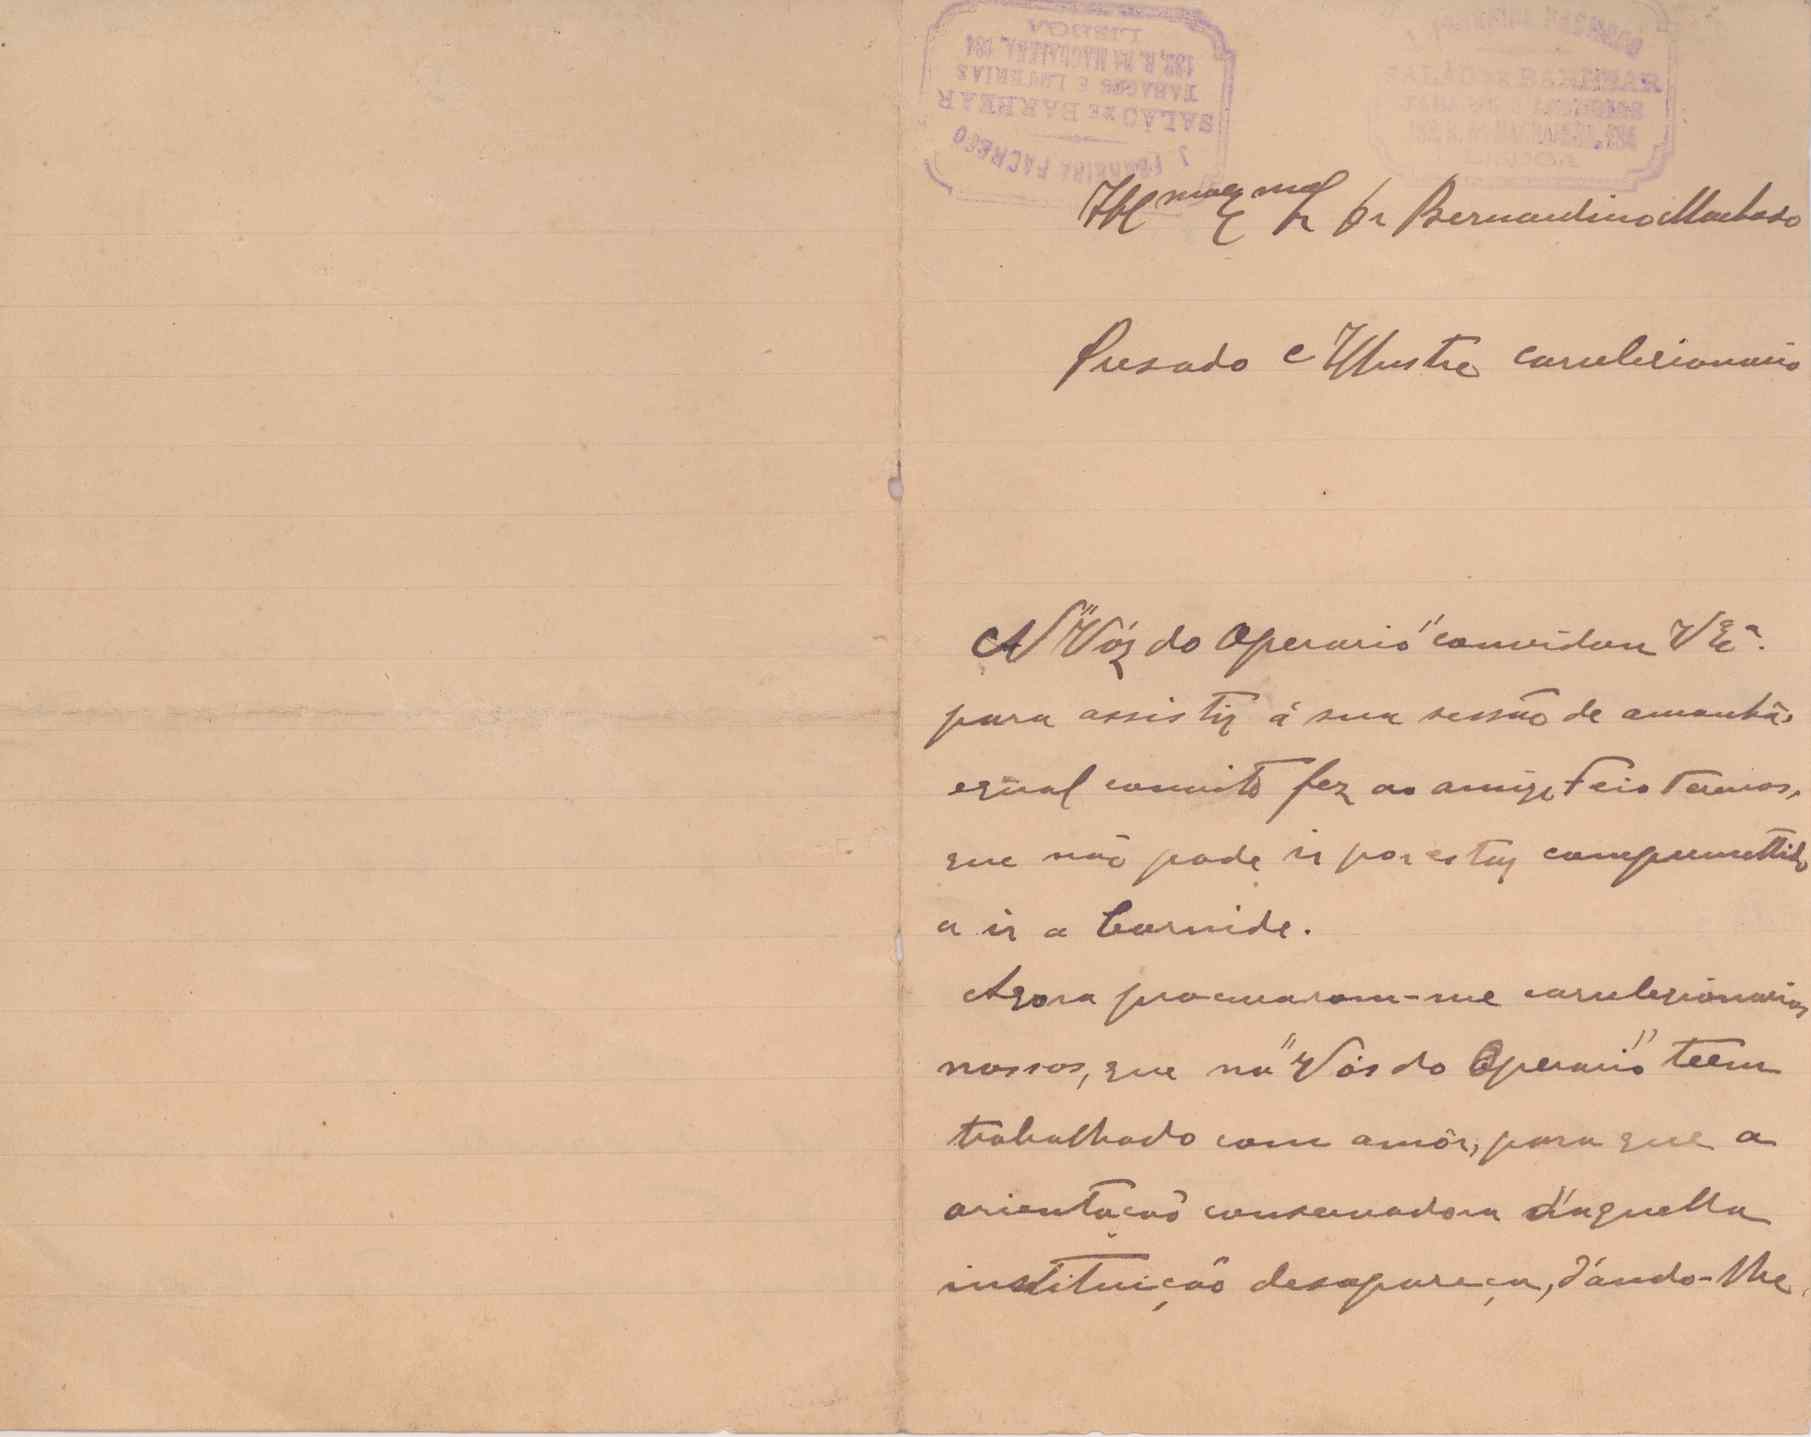 J. FERREIRA PACHECO
SALÃO DE BARBEAR
TABACOS E LOTERIAS
182, R. DA MAGDALENA, 184
LISBOA
SALÃO DE BARBEAR
182, R. DA MAGDALENA, 184
LISBOA
Ill.mo Ex.mo Sr Dr Bernardino Machado
Presado e Illustre correlegionario
A "Vóz do Operario" convidou V Ex.ª
para assistir á sua sessão de amanhã,
egual convite fez ao amigo Feio Terenas,
que não pode ir por estar compromettido
a ir a Carnide.
Agora procuraram-me correlegionarios
nossos, que na "Vós do Operario" teem
trabalhado com amôr, para que a
orientação conservadora d'aquella
instituição desapareça, dando-lhe